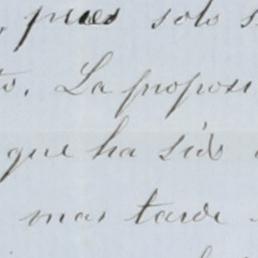 , pues solo s
to. La proposi
que ha sido
mas tarde